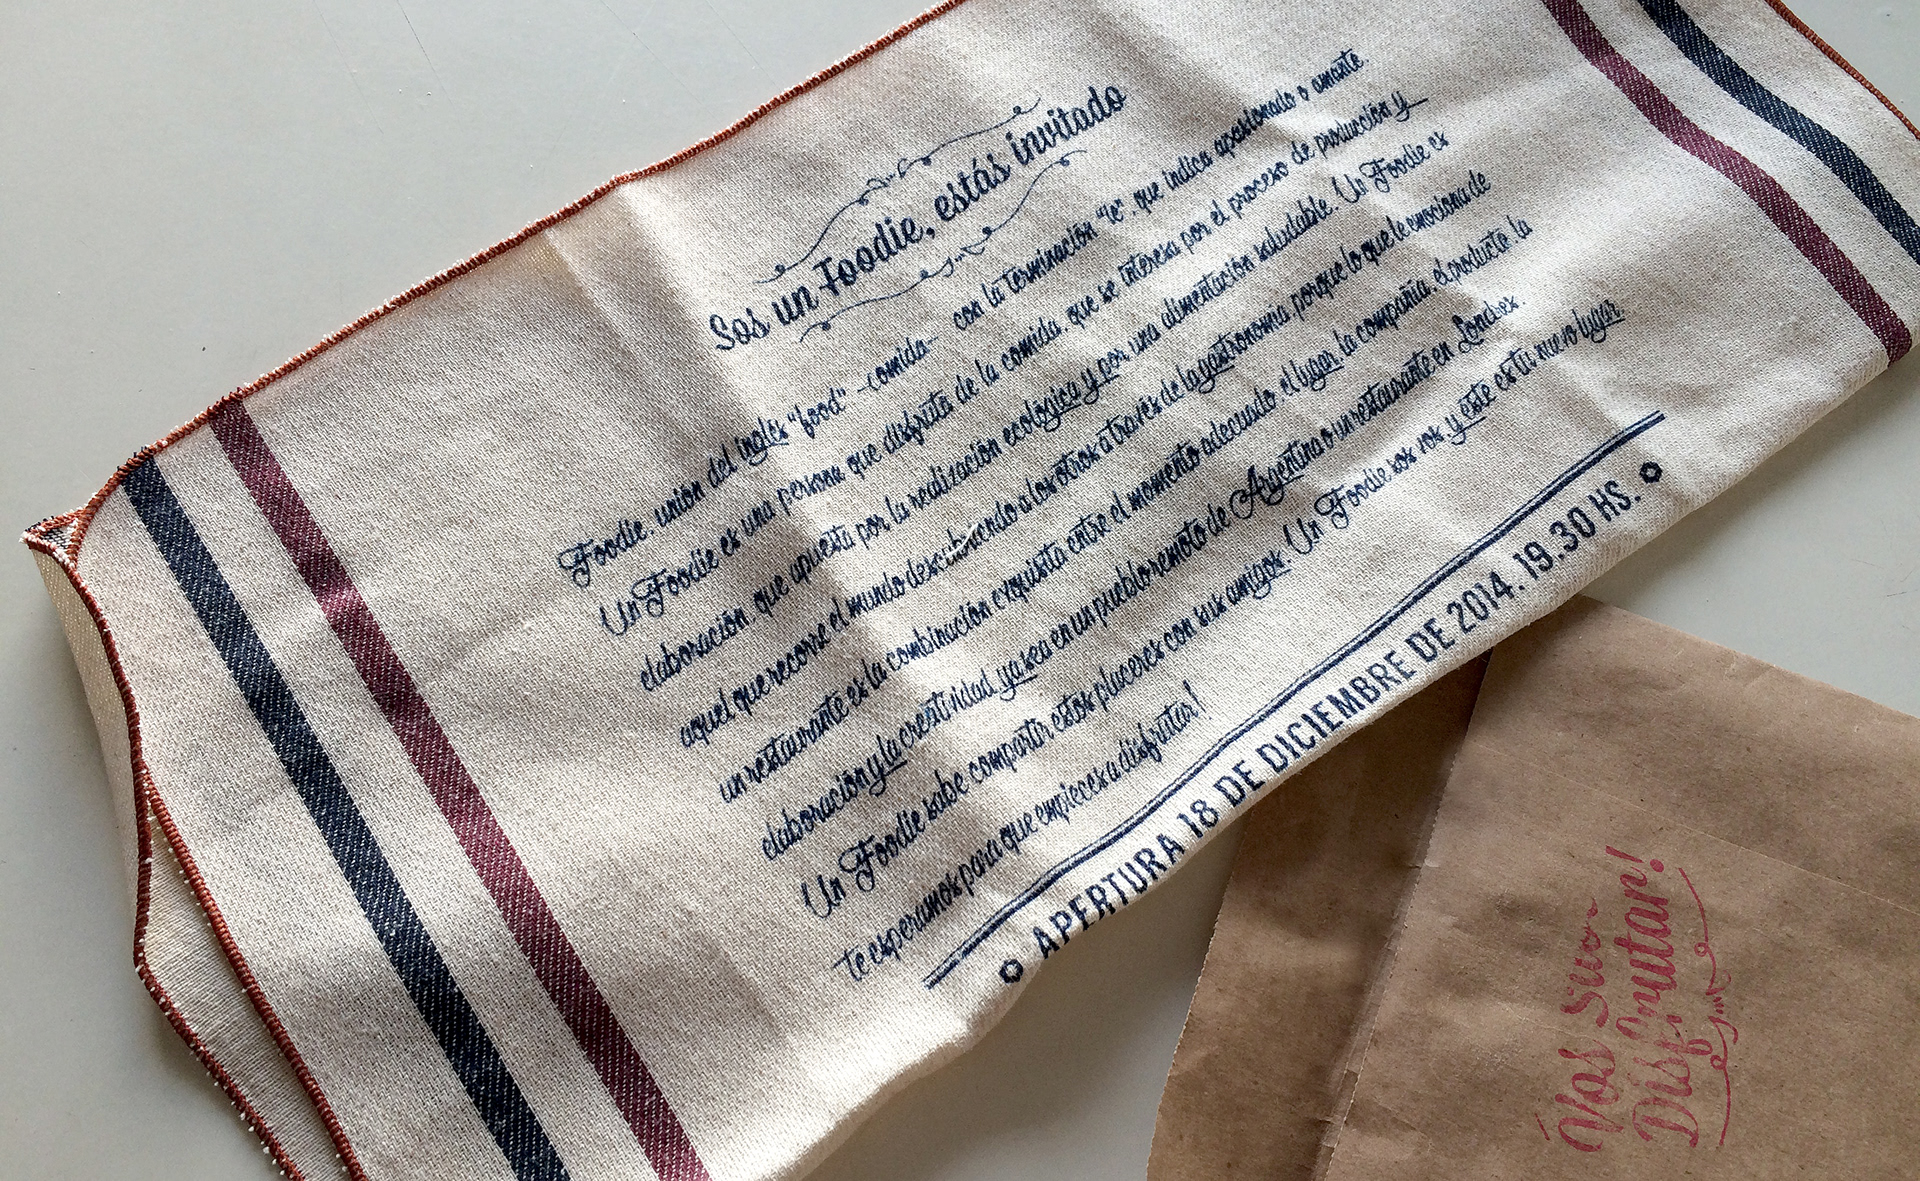 Sos un Foodie, estás invitado
Foodie, unión del inglés "food" -comida- con la terminación "ie", que indica apasionado o amante.
Un Foodie es una persona que disfruta de la comida, que se interesa por el proceso de producción y
elaboración, que apuesta por la realización ecológica y por una alimentación saludable. Un Foodie es
aquel que recorre el mundo descubriendo a los otros a través de la gastronomía, porque lo que le emociona de
un restaurante es la combinación exquisita entre el momento adecuado, el lugar, la compañía, el producto, la
elaboración y la creatividad, ya sea en un pueblo remoto de Argentina o un restaurante en Londres.
Un Foodie sabe compartir estos placeres con sus amigos. Un Foodie sos vos y este es tu nuevo lugar,
te esperamos para que empieces a disfrutar!
APERTURA 18 DE DICIEMBRE DE 2014. 19.30 HS.
Vos
Disfrutar!